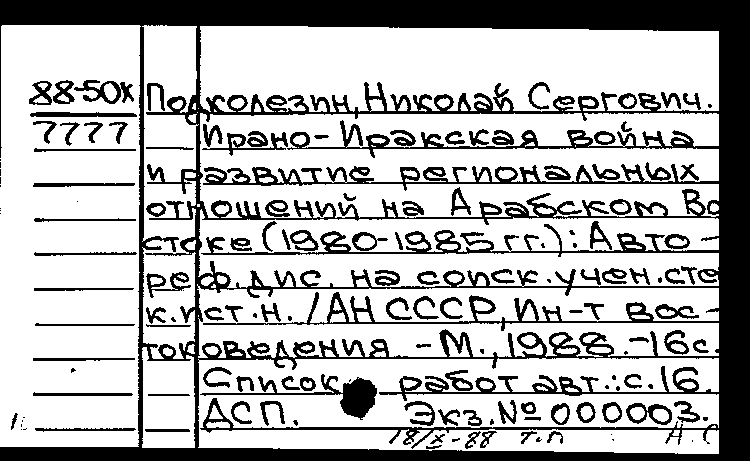 88-50к Подколезин, Николай Сергович.
7777 Ирано-Иракская война
и развитие региональных
отношений на Арабском Во
стоке (1980-1985 гг.): Авто-
реф. дис. на соиск. учен. сте
к.ист.н. / АН СССР, Ин-т вос-
токоведения - М., 1988. - 16 с.
Список работ авт.: с. 16.
ДСП. Экз. № 000003.
18/X-88 т.п А.С